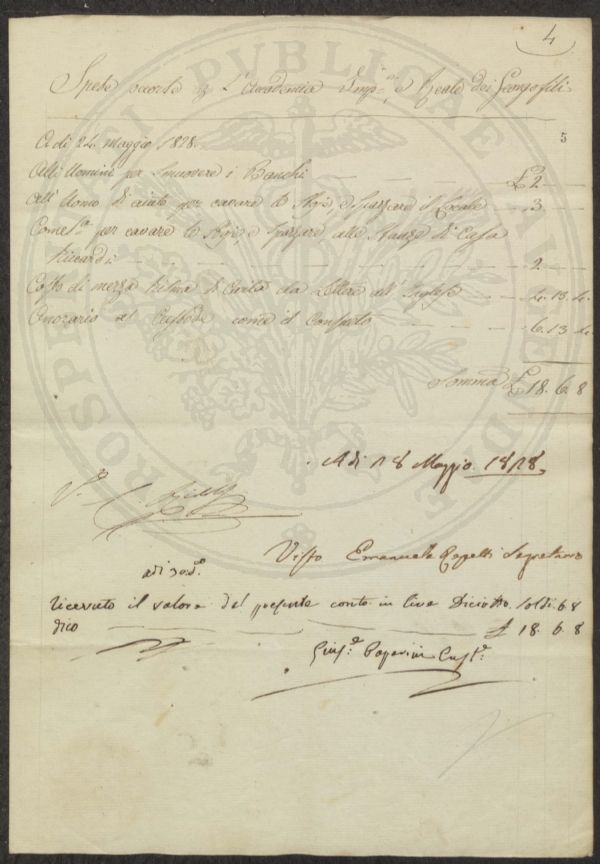 4
Spese occorse p l'Accademia Imp.e e Reale dei Georgofili
5
A di 24 Maggio 1818
Alli Uomini per smuovere i Banchi £ 2
All' Uomo di aiuto per cavare le Sedie, e spazzare il Locale 3
per cavare le e spazzare, alle Stanze di Casa
Riccardi 2
Costo di mezza Risma di Carta da Lettere all' Inglese 4. 13. 4
Onorario al Custode come il Consueto 6. 13. 4
Somma £ 18. 6. 8
Adi 28 Maggio 1818
V.o
Visto Emanuele Repetti Segretario
adi 30 d.o
Ricevuto il valore del presente conto in lire Diciotto soldi 6 8
dico £ 18. 6. 8
Gius.e Paparini Cust.e
PROSPERITATI PUBLICAE AUGENDAE